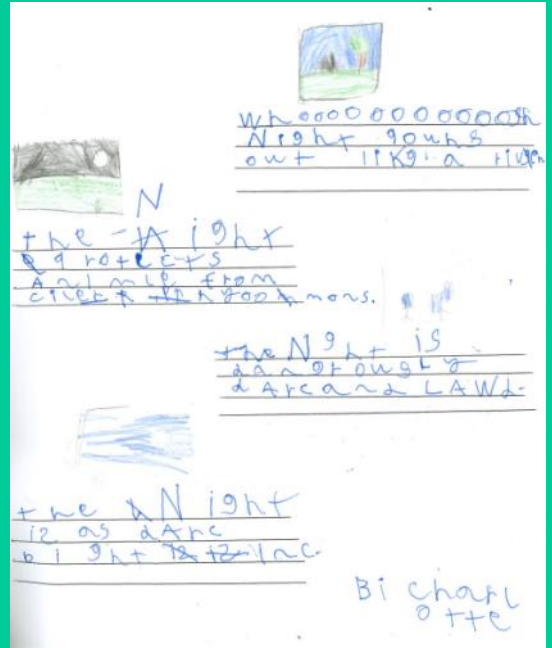 Whooooooooooooosh
Night gouhs
out like a river
the Night
protects
Animle from
mons.
the Night is
dangrously
dArc and LAWd.
the Night
iz as dArc
as inc.
Bi charl
otte